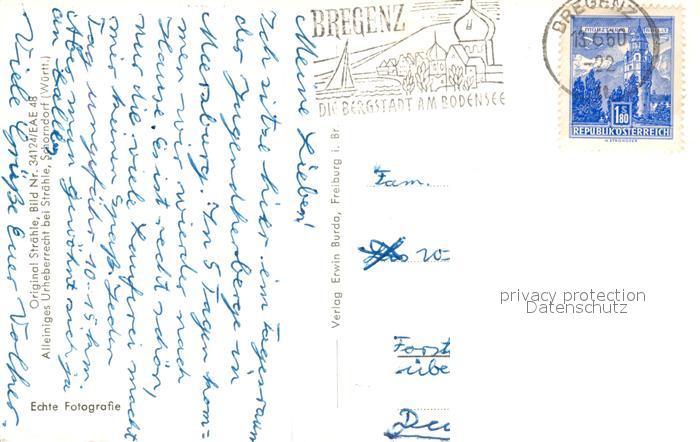 BREGENZ
DIE BERGSTADT AM BODENSEE
BREGENZ
13.6.60-22
MÜNZTURM HALL i.T.
1S80
REPUBLIK ÖSTERREICH
Meine Lieben!
Ich sitze hier im Tagesraum
der Jugendherberge in
Meersburg. In 5 Tagen kom=
men wir wieder nach
Hause. Es ist recht schön,
nur die viele Lauferei macht
mir keinen Spaß. Jeden
Tag ungefähr 10-15 km.
Aber man gewöhnt sich ja
an alles.
Viele Grüße Euer Volker.
Original Strähle, Bild Nr. 34124/EAE 48
Alleiniges Urheberrecht bei Strähle, Schorndorf (Württ.)
Echte Fotografie
Verlag Erwin Burda, Freiburg i. Br.
Fam.
Forst
übe
Deu
privacy protection
Datenschutz